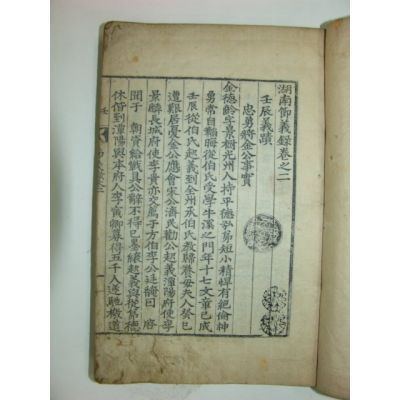 湖南節義錄卷之二
壬辰義蹟
忠勇將金公事實
金德齡字景樹光州人持平德弘弟短小精悍有絕倫神
勇常自韜晦從伯氏受學牛溪之門年十七文章已成
壬辰從伯氏起義到全州承伯氏教歸養母夫人癸巳
遭艱居憂金公應會宋公濟民勸公起義潭陽府使李
景麟長城府使李貴亦交薦于方伯李公廷馣因啓
聞于朝資給戰具公辭不得已墨縗起義與從弟德
休偕到潭陽與本府人李寅卿募得五千人遂馳檄道